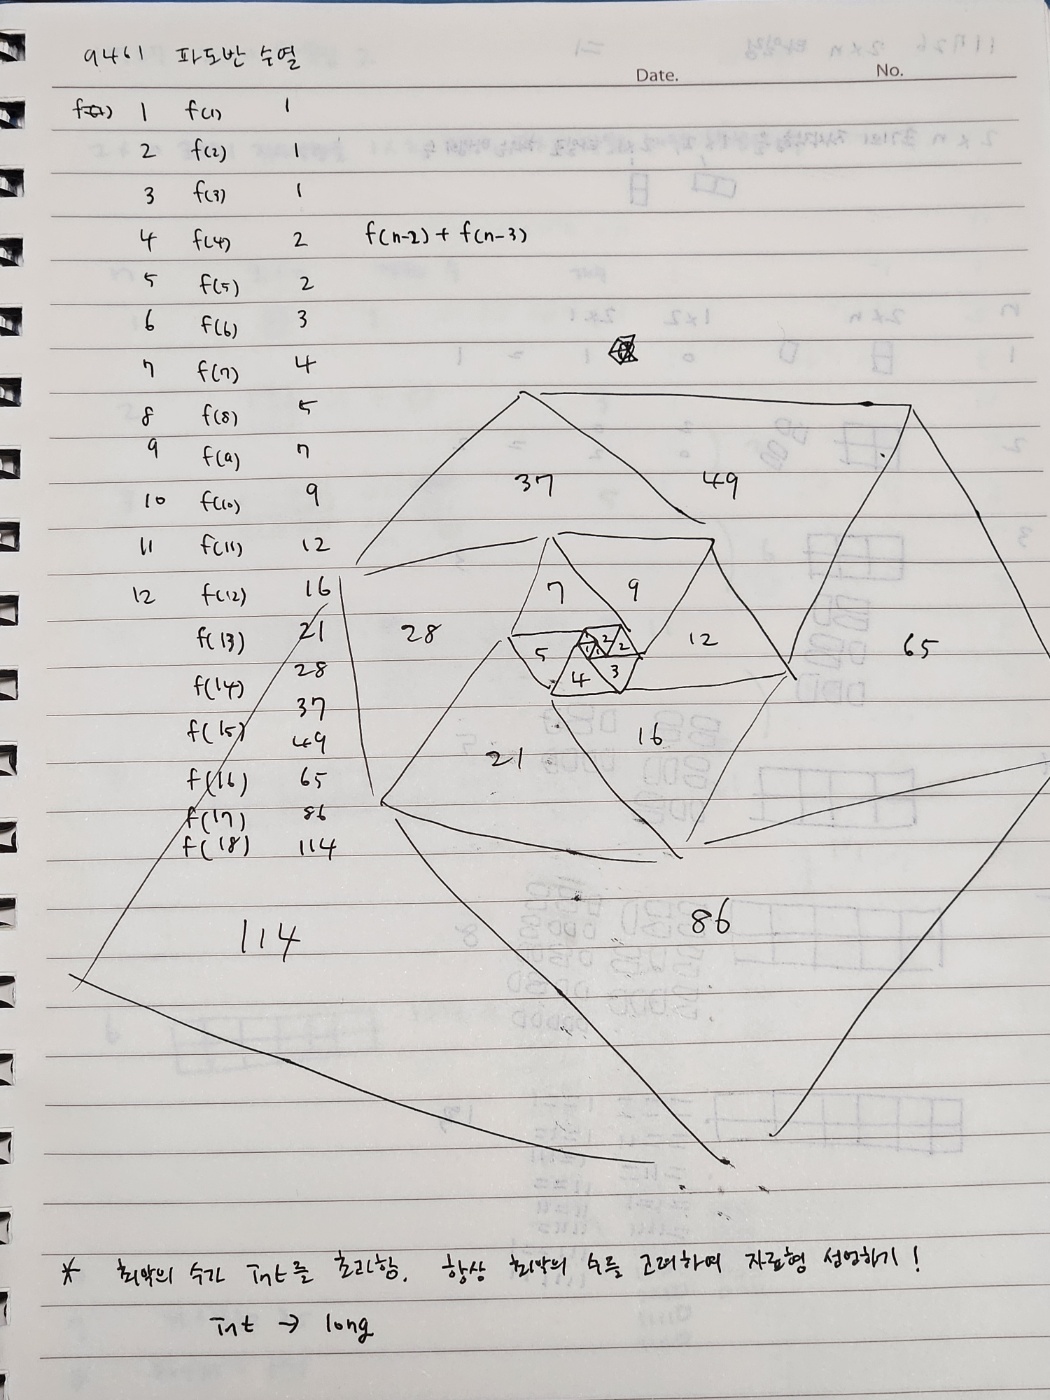 9461 파도반 수열
Date. No.
f(n) 1 f(1) 1
2 f(2) 1
3 f(3) 1
4 f(4) 2 f(n-2) + f(n-3)
5 f(5) 2
6 f(6) 3
7 f(7) 4
8 f(8) 5
9 f(9) 7
10 f(10) 9
11 f(11) 12
12 f(12) 16
f(13) 21
f(14) 28
f(15) 37
f(16) 49
f(17) 65
f(18) 86
114
37 49
7 9
28 5 1 1 1 2 2 12 65
4 3
21 16
114 86
* 최악의 수가 Int를 초과함. 항상 최악의 수를 고려하여 자료형 선언하기!
Int → long